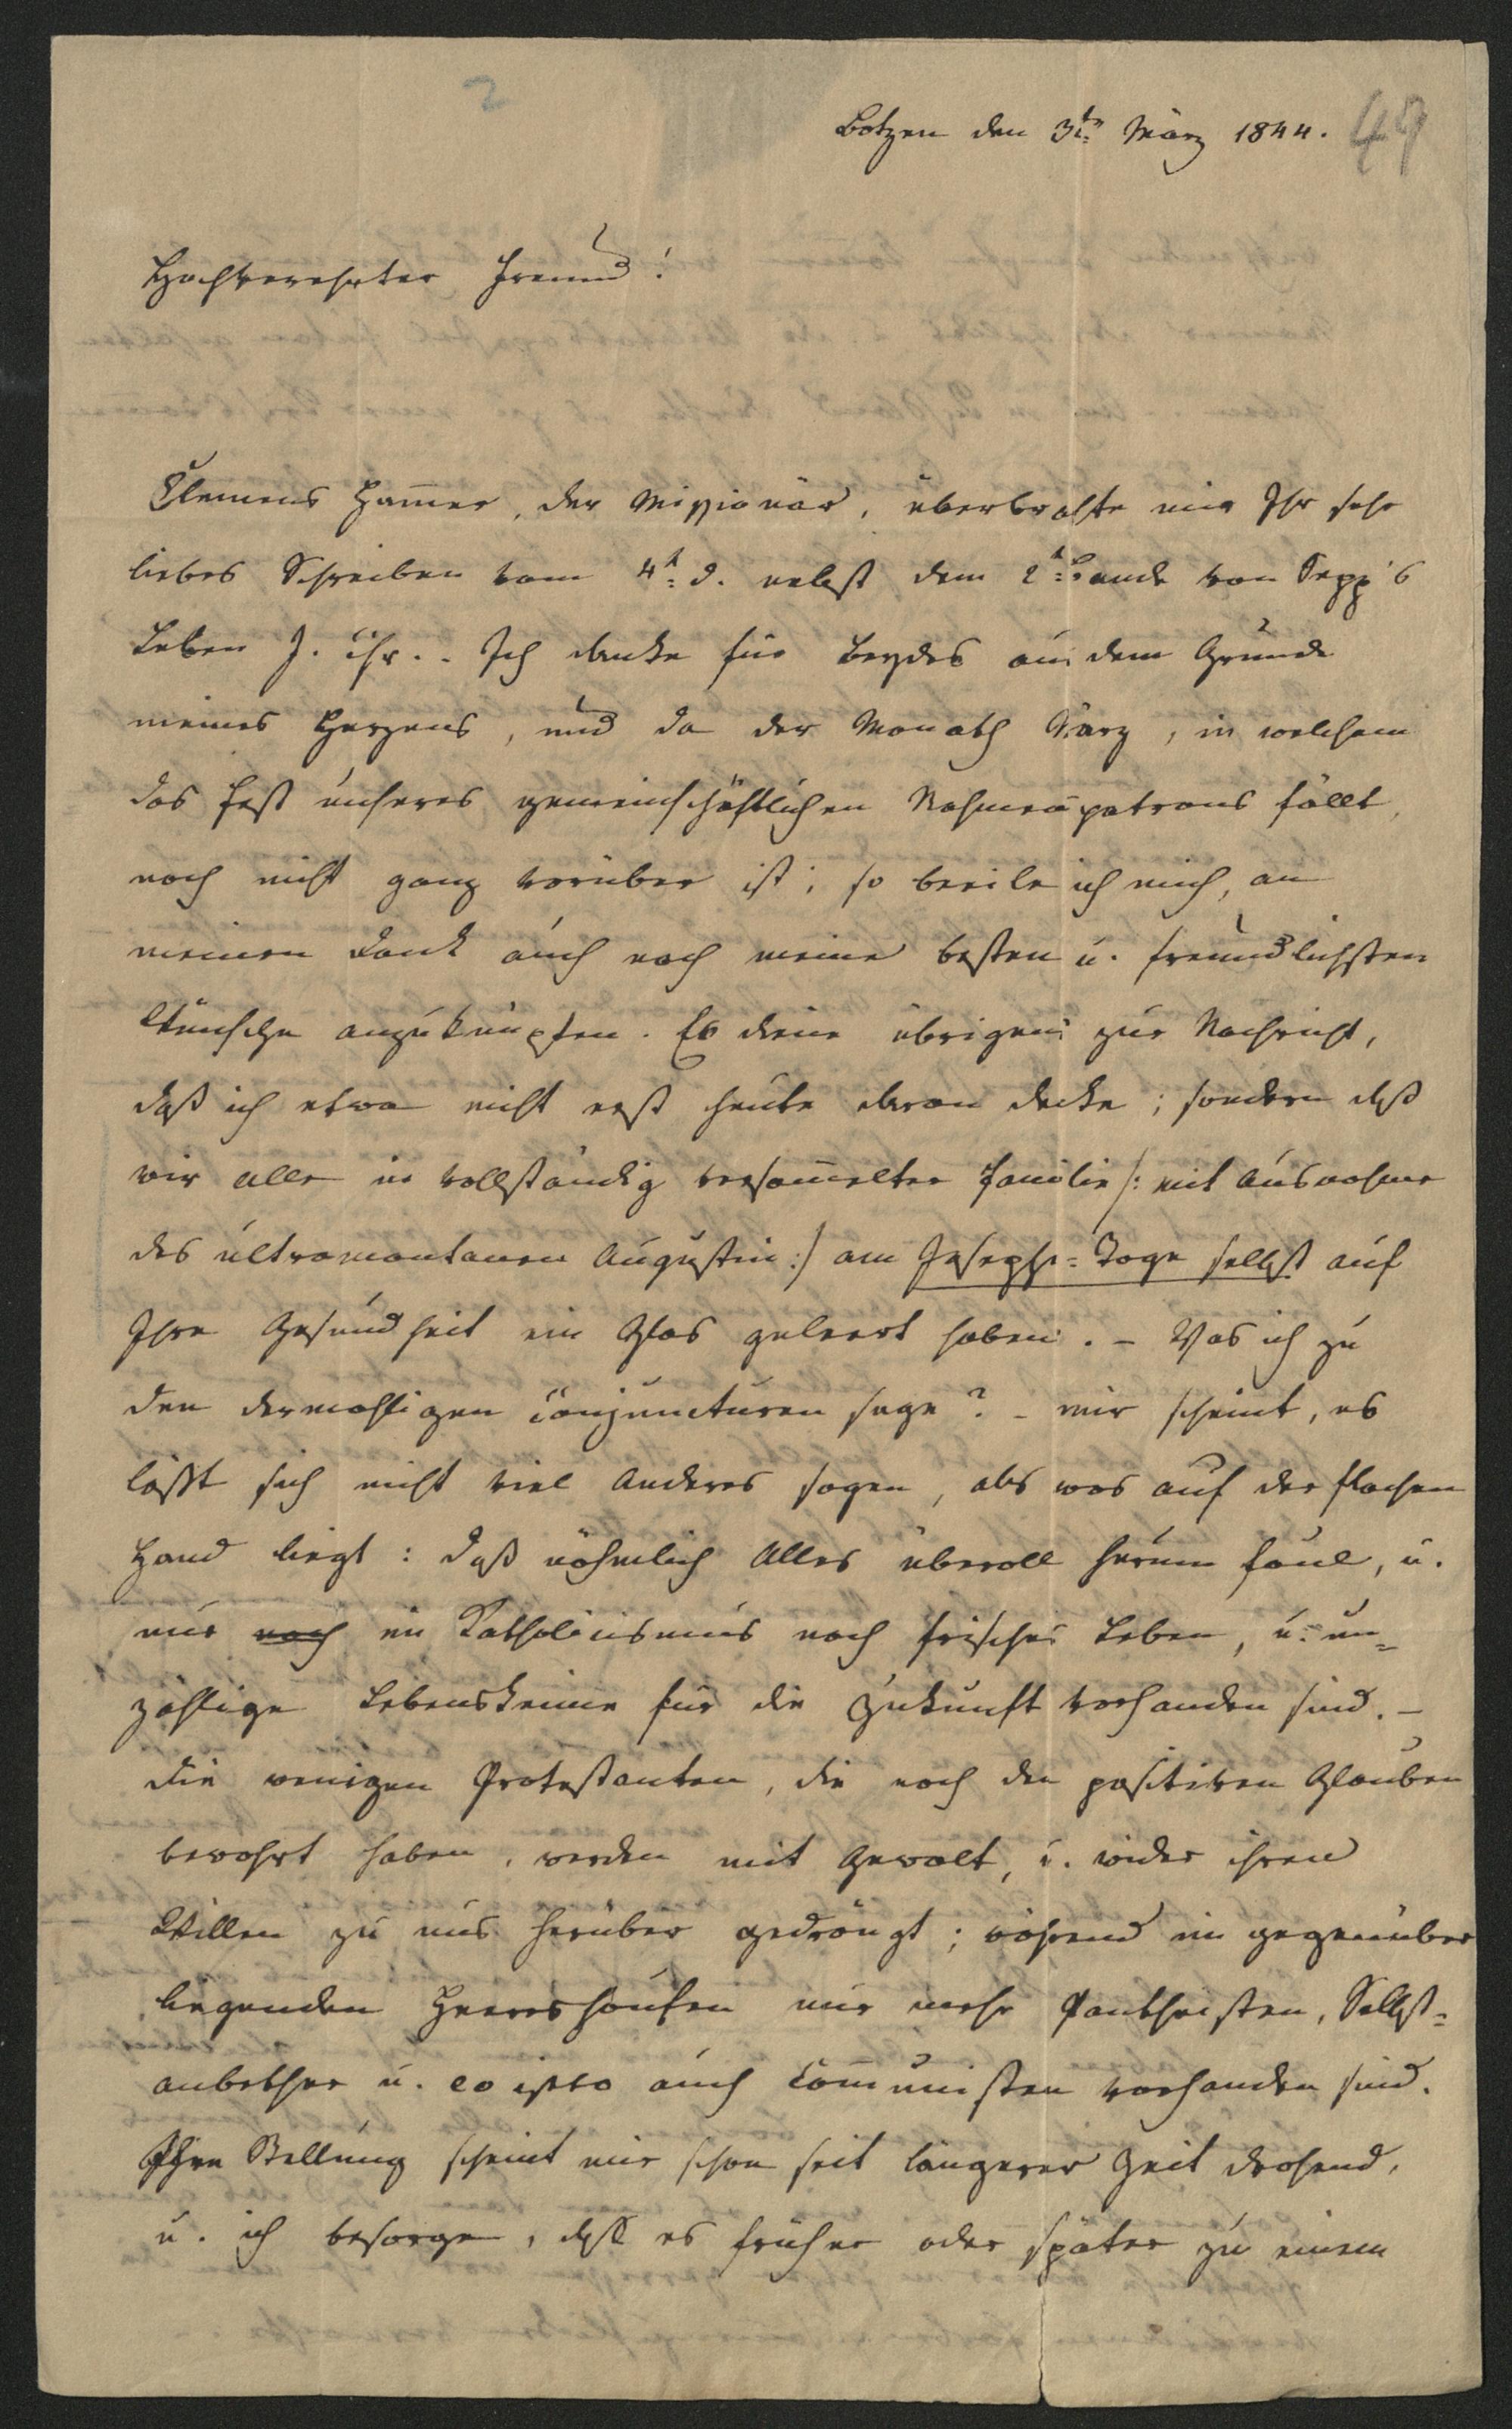 2
Botzen den 31t: März 1844.
49
Hochverehrter Freund!
Clemens Ham̅er, der Missionär, überbrachte mir Ihr sehr
liebes Schreiben vom 4t: d. nebst dem 2t: Bande von Sepp's
Leben J. Chr. - Ich danke für Beydes aus dem Grunde
meines Herzens, und da der Monath März, in welchem
das Fest unseres gemeinschäftlichen Nahmenspatrons fällt,
noch nicht ganz vorüber ist; so beeile ich mich, an
meinen Dank auch noch meine besten u. freundlichsten
Wünsche anzuknüpfen. Es diene übrigens zur Nachricht,
daß ich etwa nicht erst heute daran denke; sondern daß
wir alle in vollständig versam̅elter Familie /: mit Ausnahme
des ultramontanen Augustin :/ am Josephs-Tage selbst auf
Ihre Gesundheit ein Glas geleert haben. - Was ich zu
den dermahligen Conjuncturen sage? - mir scheint, es
läßt sich nicht viel Anderes sagen, als was auf der flachen
Hand liegt: daß nähmlich Alles überall herum faul, u.
nur noch im Katholicismus noch frisches Leben, u. un=
zählige Lebenskeime für die Zukunft vorhanden sind. -
Die wenigen Protestanten, die noch den positiven Glauben
bewahrt haben, werden mit Gewalt, u. wider ihren
Willen zu uns herüber gedrängt; während im gegenüber
liegenden Heereshaufen nur mehr Pantheisten, Selbst=
anbether u. eo ipso auch Com̅unisten vorhanden sind.
Ihre Stellung scheint mir schon seit längerer Zeit drohend,
u. ich besorge, daß es früher oder später zu einem